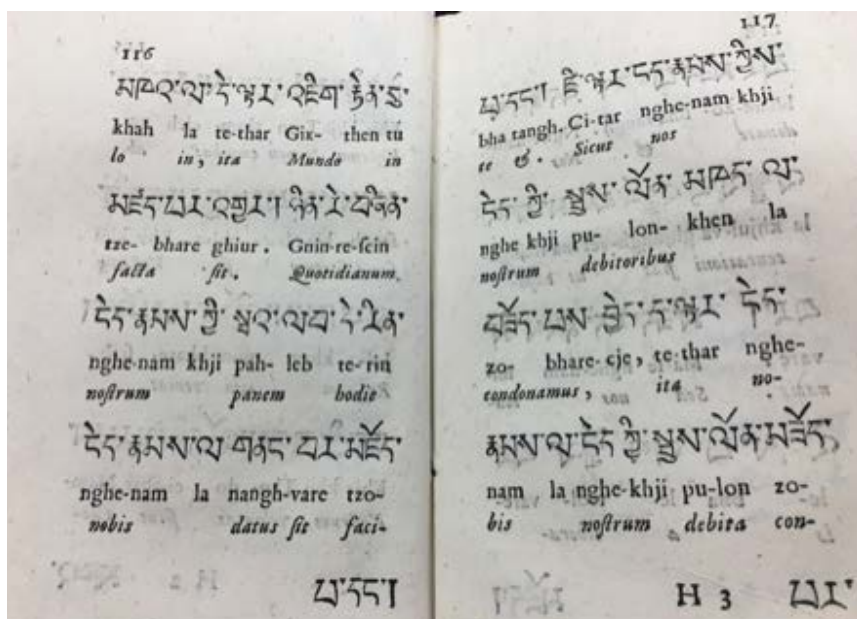 116
མཁའ་ལ་དེ་ལྟར་འཇིག་རྟེན་ཏུ་
khah la te-thar Gix- then tu
lo in, ita Mundo in
མཛད་པར་འགྱུར། ཉིན་རེ་བཞིན་
tze- bhare ghiur. Gnin-re-scin
facta sit. Quotidianum
ངེད་རྣམས་ཀྱི་སྤའ་ལབ་དེ་རིན་
nghe-nam khji pah- leb te-rin
nostrum panem hodie
ངེད་རྣམས་ལ་གནང་བར་མཛོད་
nghe-nam la nangh-vare tzo-
nobis datus sit faci-
པ་དང།
117
པ་དང། ཇི་ལྟར་ངད་རྣམས་ཀྱིས་
bha tangh. Ci-tar nghe-nam khji
te &. Sicut nos
ངེད་ཀྱི་སྤུས་ལོན་མཁན་ལ་
nghe khji pu- lon- khen la
nostrum debitoribus
བཟོད་པས་བྱེད་ད་ལྟར་ངེད་
zo- bhare-cje, te-thar nghe-
condonamus, ita no-
རྣམས་ལ་ངེད་ཀྱི་སྤུས་ལོན་མཟོད་
nam la nghe-khji pu-lon zo-
bis nostrum debita con-
H 3 པར་